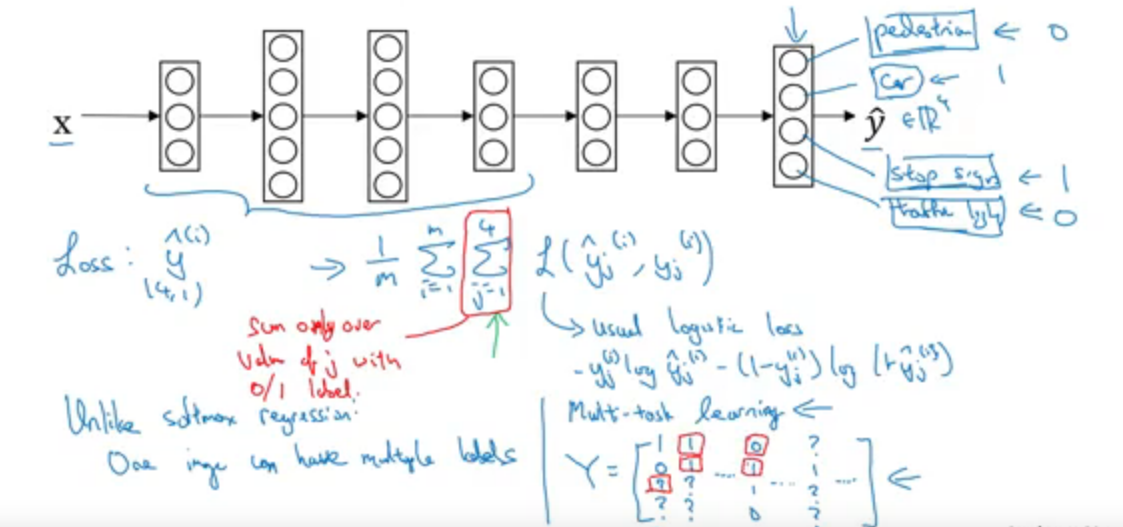 pedestrian ← 0
car ← 1
x
ŷ ∈ ℝ⁴
stop sign ← 1
traffic light ← 0
Loss: ŷ^(i) → 1/m Σ_{i=1}^{m} Σ_{j=1}^{4} L(ŷ_j^(i), y_j^(i))
(4,1)
sum only over
value of j with
0/1 label.
usual logistic loss
- y_j^(i) log ŷ_j^(i) - (1-y_j^(i)) log (1-ŷ_j^(i))
Unlike softmax regression:
One image can have multiple labels
Multi-task learning ←
Y = [
1 1 0 ?
0 1 .... 1 .... 1 ....
? ? 1 ?
? ? 0 ?
] ←